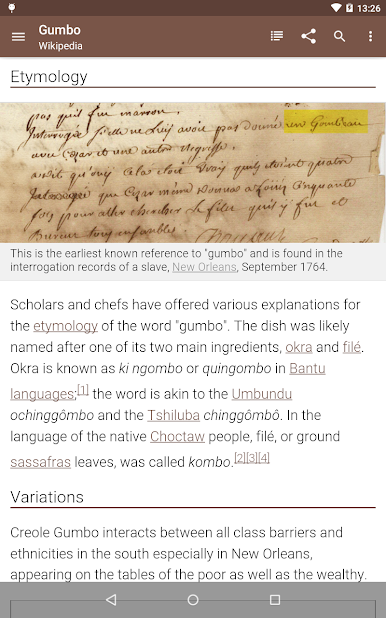 13:26
Gumbo
Wikipedia
Etymology
pas qu'il fut marron.
Interrogé s'il ne luy avoit pas donné un Gombeau
avec Cezar et une autre Negresse.
a dit qu'ouy
que Czar même donna a
fois pour aller chercher la fille qu'il y fut et
This is the earliest known reference to "gumbo" and is found in the
interrogation records of a slave, New Orleans, September 1764.
Scholars and chefs have offered various explanations for
the etymology of the word "gumbo". The dish was likely
named after one of its two main ingredients, okra and filé.
Okra is known as ki ngombo or quingombo in Bantu
languages;[1] the word is akin to the Umbundu
ochinggômbo and the Tshiluba chinggômbô. In the
language of the native Choctaw people, filé, or ground
sassafras leaves, was called kombo.[2][3][4]
Variations
Creole Gumbo interacts between all class barriers and
ethnicities in the south especially in New Orleans,
appearing on the tables of the poor as well as the wealthy.